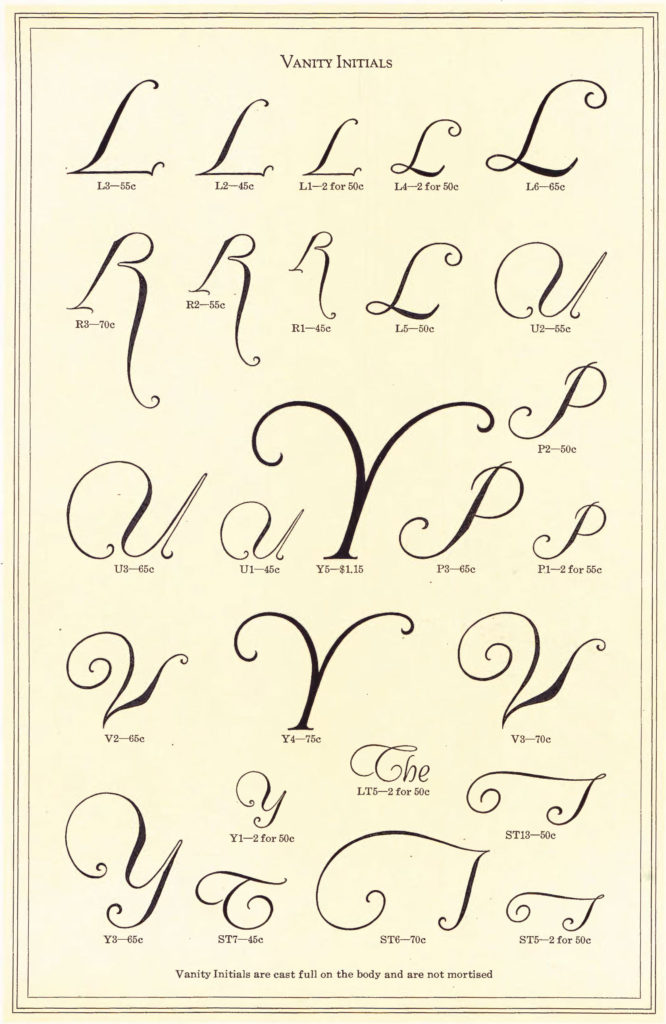 VANITY INITIALS
L L L L L
L3—55c L2—45c L1—2 for 50c L4—2 for 50c L6—65c
R R R L U
R2—55c
R3—70c R1—45c L5—50c U2—55c
P
P2—50c
U U Y P P
U3—65c U1—45c Y5—$1.15 P3—65c P1—2 for 55c
V Y V
V2—65c Y4—75c V3—70c
The
LT5—2 for 50c
Y T
Y1—2 for 50c ST13—50c
Y T T T
Y3—65c ST7—45c ST6—70c ST5—2 for 50c
Vanity Initials are cast full on the body and are not mortised